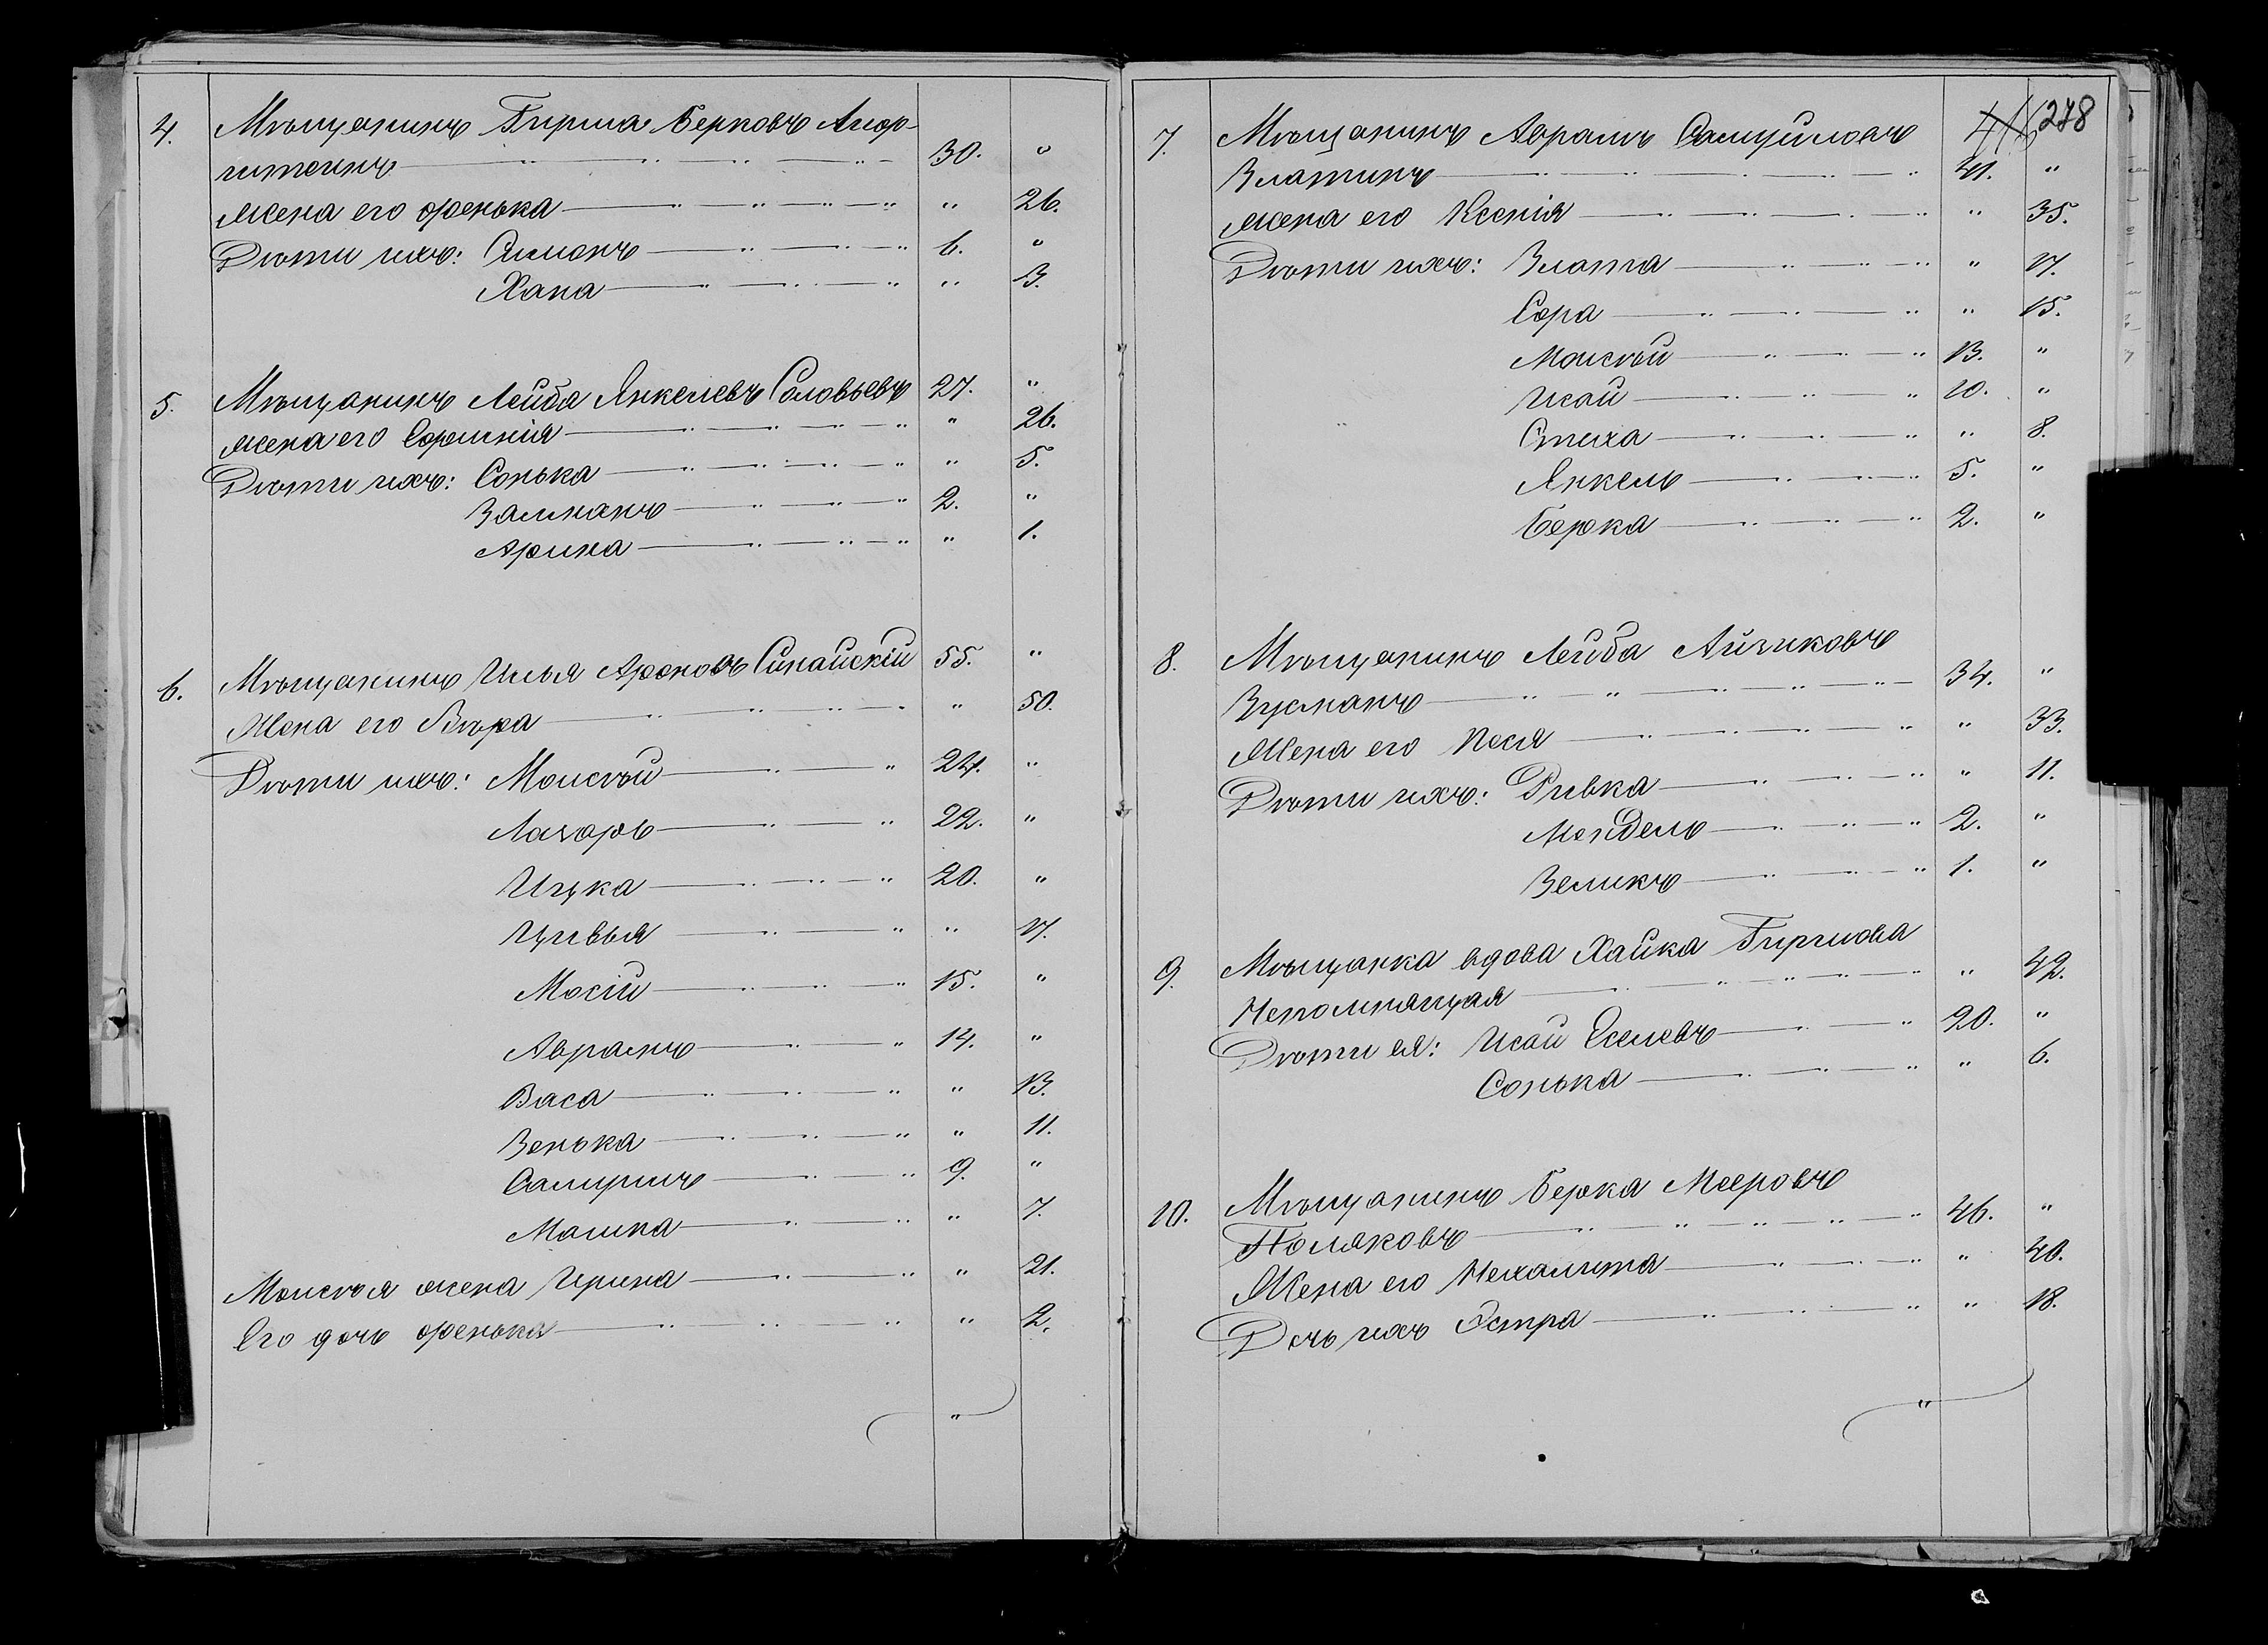 4. Мѣщанинъ Гирша Берковъ Амор-
гитинъ 30. "
жена его Фенька " 26.
Дѣти ихъ: Симонъ 6. "
Хана " 3.
5. Мѣщанинъ Лейба Янкелевъ Соловьевъ 27. "
жена его " 26.
Дѣти ихъ: Сонька " 5.
Залманъ 2. "
Арина " 1.
6. Мѣщанинъ Илья Ароновъ Синайскій 55. "
Жена его Вѣра " 50.
Дѣти ихъ: Моисѣй 24. "
Лазарь 22. "
Ицка 20. "
Цивья " 17.
Мосій 15. "
Абрамъ 14. "
Васа " 13.
Зенька " 11.
Самуилъ 9. "
Машка " 7.
Моисѣя жена Ирина " 21.
Его дочь Фенька " 2.
"
278
7. Мѣщанинъ Абрамъ Самуиловъ
Златинъ 41. "
жена его Ксенія " 35.
Дѣти ихъ: Злата " 17.
Сора " 15.
Моисѣй 13. "
Исай 10. "
Стиха " 8.
Янкель 5. "
Берка 2. "
8. Мѣщанинъ Лейба Айзиковъ
Зусманъ 34. "
Жена его Песя " 33.
Дѣти ихъ: Ривка " 11.
Мендель 2. "
Зеликъ 1. "
9. Мѣщанка вдова Хайка Гиршова
Непомнящая " 42.
Дѣти ея: Исай Еселевъ 20. "
Сонька " 6.
10. Мѣщанинъ Берка Мееровъ
Поляковъ 46. "
Жена его Нехамита " 40.
Дочь ихъ Эстра " 18.
"